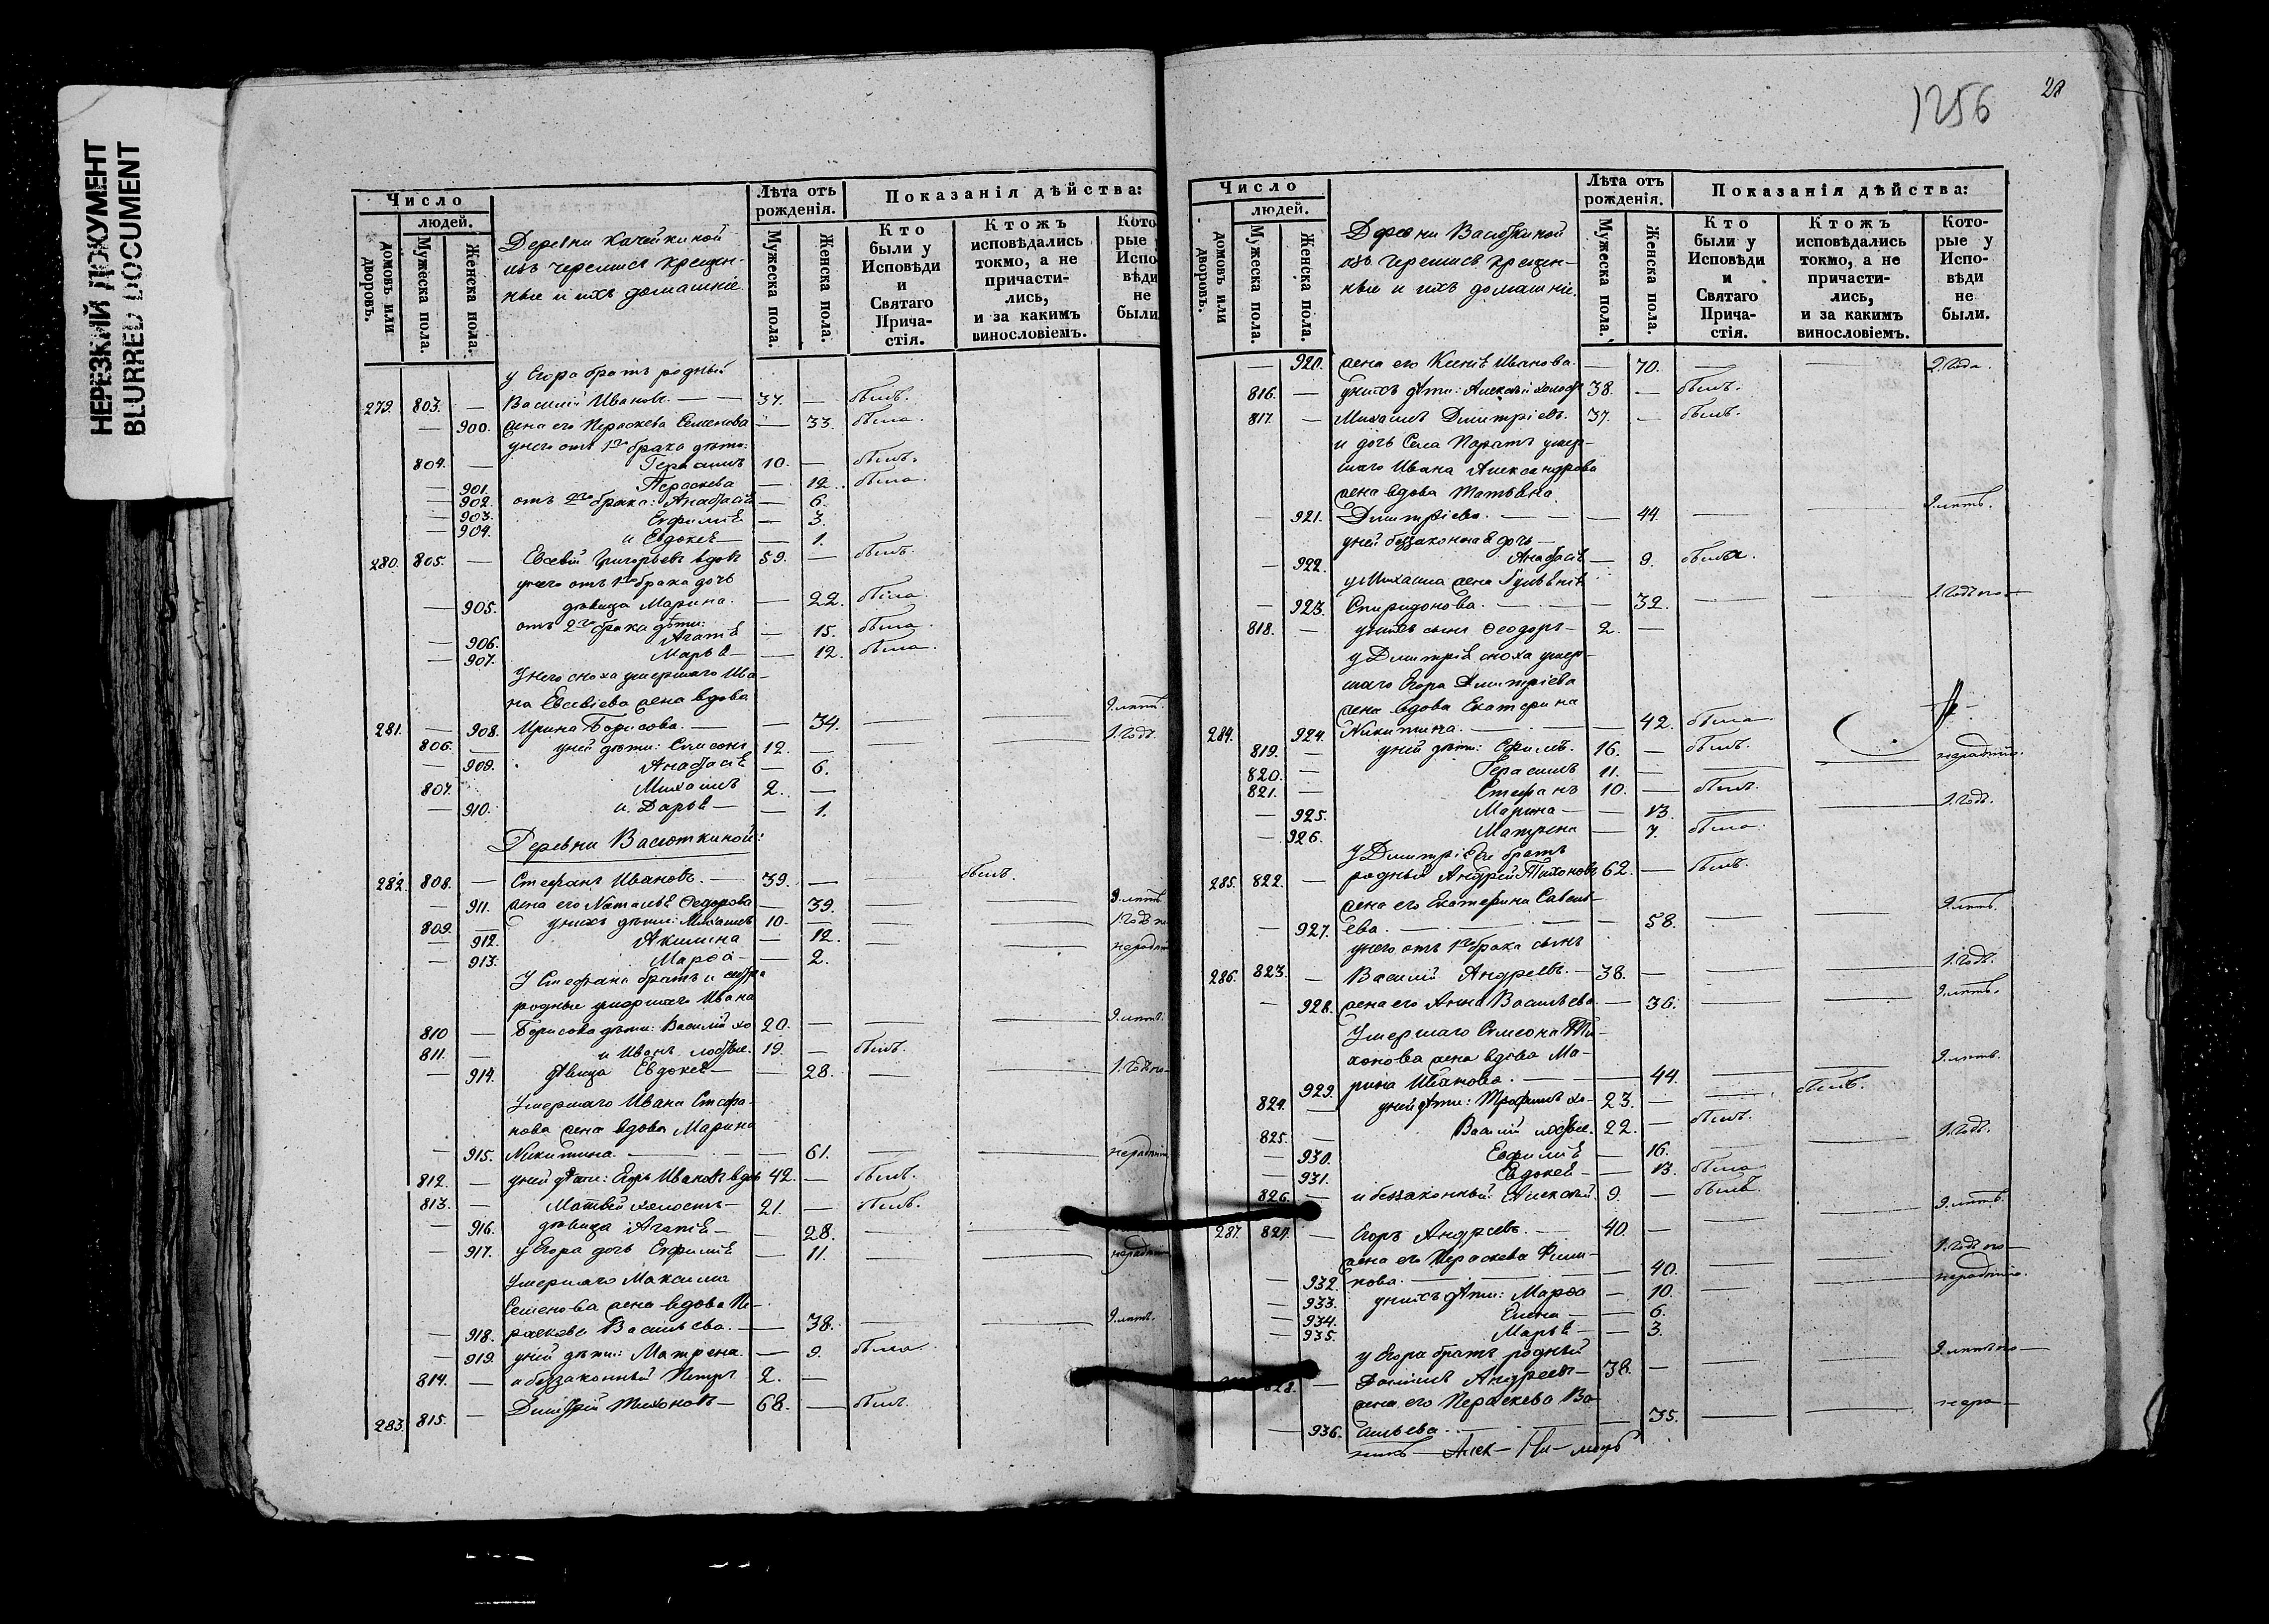 НЕРЕЗКИЙ ДОКУМЕНТ
BLURRED DOCUMENT
Число
людей.
домовъ или дворовъ.
Мужеска пола.
Женска пола.
Деревни Качейкиной
изъ черемисъ крещен-
ные и ихъ домашніе.
Лѣта отъ рожденія.
Мужеска пола.
Женска пола.
Показанія дѣйства:
Кто были у Исповѣди и Святаго Прича-стія.
Ктожъ исповѣдались токмо, а не причасти-лись, и за какимъ винословіемъ.
Кото-рые Испо-вѣди не были
у Егора братъ родный
279. 803. — Василій Ивановъ — 37. — былъ.
— 900. жена его Пераскева Семенова — 33. была.
у него отъ 1го брака дѣти:
804. — Герасимъ 10. — былъ.
— 901. Пераскева — 12. была.
— 902. отъ 2го брака: Анастасія — 6.
— 903. Евфимія — 3.
— 904. и Евдокея — 1.
280. 805. — Евсевій Григорьевъ вдовъ 59. — былъ.
у него отъ 1го брака дочь
— 905. дѣвица Марина. — 22. была.
отъ 2го брака дѣти:
— 906. Агапія — 15. была.
— 907. Марья — 12. была.
У него сноха умершаго Ива-
на Евсевіева жена вдова
281. — 908. Ирина Борисова. — 34. — — 2. лѣтъ.
806. — у ней дѣти: Симеонъ 12. — — — 1. годъ.
— 909. Анастасія — 6.
807. Михаилъ 2. —
— 910. и Дарья — 1.
Деревни Васюткиной:
282. 808. — Стефанъ Ивановъ. — 39. — — былъ.
— 911. жена его Наталья Федорова — 39. — —
809. — у нихъ дѣти: Михаилъ 10. — — —
— 912. Акилина — 12. — —
— 913. Марѳа — 2.
У Стефана братъ и сестра
родные умершаго Ивана
810 — Борисова дѣти: Василій хо 20. — — —
811. — и Иванъ холостые. 19. — былъ.
— 914. дѣвица Евдокея — 28. —
Умершаго Ивана Стефа-
нова жена вдова Марина
— 915. Никитина — 61. — —
812. — у ней дѣти: Егоръ Ивановъ вдовъ 42. — былъ.
813. — Матвѣй холостъ — 21. — былъ.
— 916. дѣвица Агапія — 28. — —
— 917. у Егора дочь Евфимія — 11. — —
Умершаго Максима
Семенова жена вдова Пе-
— 918. раскева Васильева. — 38. — —
— 919. у ней дѣти: Матрена. — 9. была.
814. — и беззаконный Петръ 2. —
283. 815. — Димитрій Тихоновъ — 68. — былъ.
1256
28
Число
людей.
домовъ или дворовъ.
Мужеска пола.
Женска пола.
Деревни Васюткиной
изъ черемисъ крещен-
ные и ихъ домашніе.
Лѣта отъ рожденія.
Мужеска пола.
Женска пола.
Показанія дѣйства:
Кто были у Исповѣди и Святаго Прича-стія.
Ктожъ исповѣдались токмо, а не причасти-лись, и за какимъ винословіемъ.
Кото-рые у Испо-вѣди не были.
— 920. жена его Ксенія Иванова — 70. — — 2. года.
816. — у нихъ дѣти: Алексѣй холостъ 38. — былъ.
817. — Михаилъ Димитріевъ. 37. — былъ.
и дочь Села умер-
шаго Ивана Александрова
жена вдова Татьяна
— 921. Димитріева. — 44. — —
у ней беззаконная дочь —
— 922. Анастасія — 9. была.
у Михаила жена
— 923. Спиридонова. — 32. — —
818. — у нихъ сынъ Ѳеодоръ — 2. —
у Димитрія сноха умер-
шаго Егора Димитріева
жена вдова Екатерина
284. 924. Никитина. — 42. была
819. — у ней дѣти: Ефимъ. 16. — былъ.
820. — Герасимъ 11. — — —
821. — Стефанъ 10. — былъ.
— 925. Марина — 13. — — 1. годъ.
— 926. Матрена — 7. была.
У Димитрія братъ
285. 822. — родный Андрей Тихоновъ 62. — былъ.
жена его Екатерина Савель-
— 927. ева. — 58. — —
у него отъ 1го брака сынъ
286. 823. — Василій Андреевъ. — 38. — — — 1. годъ.
— 928. жена его Анна Васильева — 36. — —
Умершаго Симеона Ти-
хонова жена вдова Ма-
— 929. рина Иванова. — 44. — —
824. — у ней дѣти: Трофимъ хо- 23. — — былъ.
825. — Василій холостые. 22. — былъ.
— 930. Евфимія — 16. — — 1. годъ.
— 931. Евдокея — 13. была
826. — и беззаконный Алексѣй. 9. — былъ.
287. 827. — Егоръ Андреевъ. 40. — — —
жена его Пераскева Фили-
— 932. пова. — 40. — —
— 933. у нихъ дѣти: Марѳа — 10. — —
— 934. Елена — 6.
— 935. Марья — 3.
у Егора братъ родный
828. — Даніилъ Андреевъ — 38. — — —
жена его Пераскева Ва-
— 936. сильева. — 35. — —